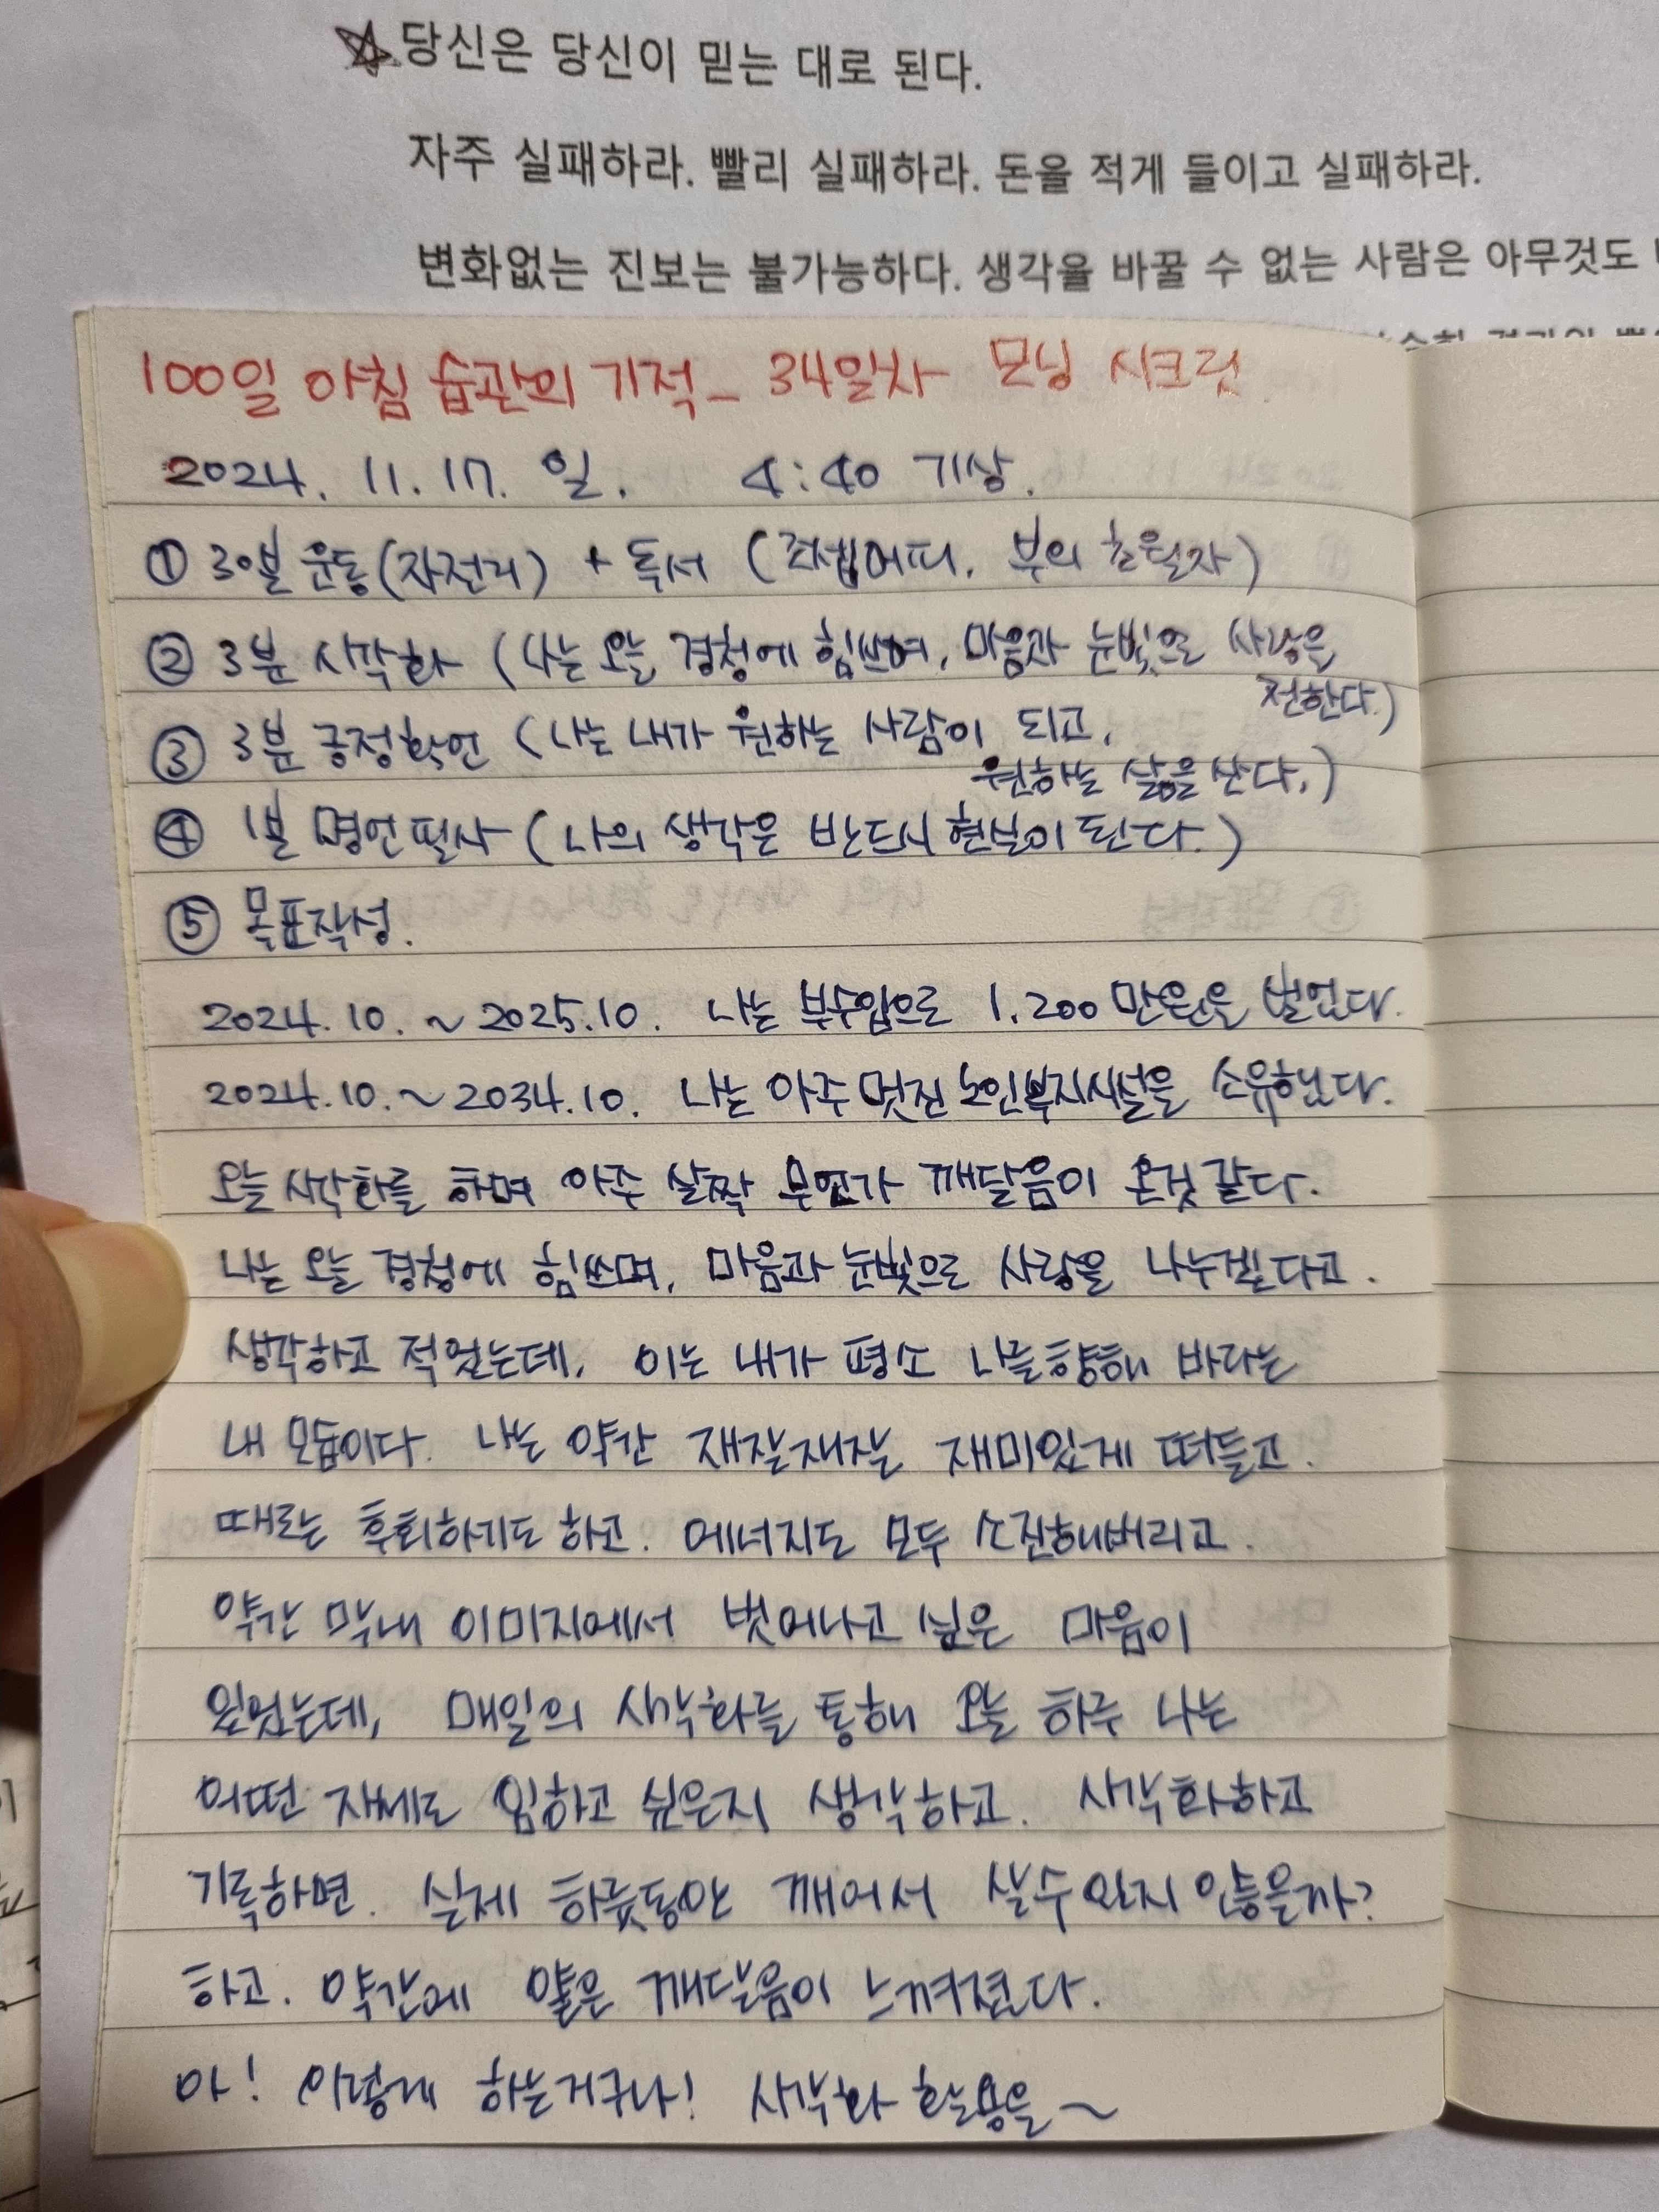 당신은 당신이 믿는 대로 된다.
자주 실패하라. 빨리 실패하라. 돈을 적게 들이고 실패하라.
변화없는 진보는 불가능하다. 생각을 바꿀 수 없는 사람은 아무것도
100일 아침 습관의 기적_ 34일차 모닝 시크릿
2024. 11. 17. 일. 4:40 기상.
① 30분 운동(자전거) + 독서 (조셉머피, 부의 초월자)
② 3분 시각화 (나는 오늘 경청에 힘쓰며, 마음과 눈빛으로 사랑을
전한다.)
③ 3분 긍정확언 (나는 내가 원하는 사람이 되고,
원하는 삶을 산다.)
④ 1분 명언필사 (나의 생각은 반드시 현실이 된다.)
⑤ 목표작성.
2024. 10. ~ 2025. 10. 나는 부수입으로 1,200만원을 벌었다.
2024. 10. ~ 2034. 10. 나는 아주 멋진 노인복지시설을 소유했다.
오늘 시각화를 하며 아주 살짝 무언가 깨달음이 온것 같다.
나는 오늘 경청에 힘쓰며, 마음과 눈빛으로 사랑을 나누겠다고.
생각하고 적었는데, 이는 내가 평소 나를향해 바라는
내 모습이다. 나는 약간 재잘재잘 재미있게 떠들고.
때로는 후회하기도 하고. 에너지도 모두 소진해버리고.
약간 막내 이미지에서 벗어나고 싶은 마음이
있었는데, 매일의 시각화를 통해 오늘 하루 나는
어떤 자세로 임하고 싶은지 생각하고. 시각화하고
기록하면. 실제 하루동안 깨어서 살수 있지 않을까?
하고. 약간에 얇은 깨달음이 느껴졌다.
아! 이렇게 하는거구나! 시각화 활용을~